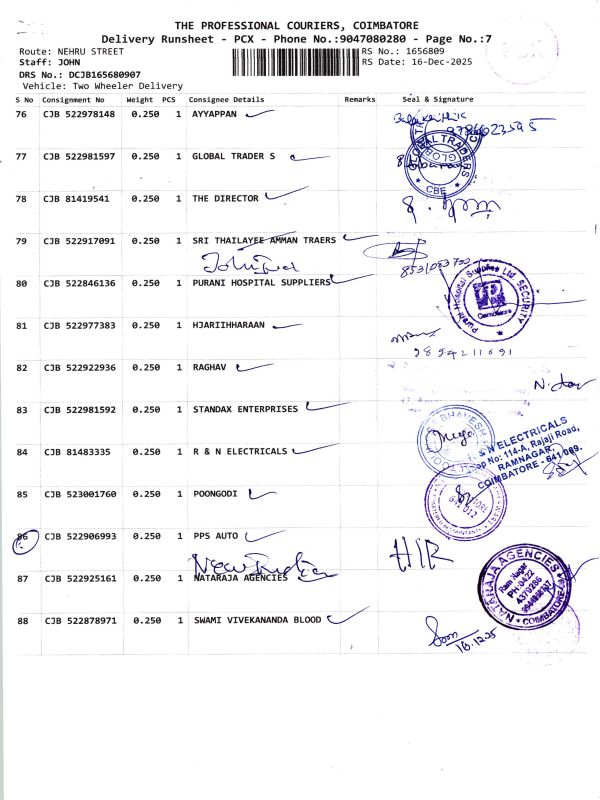 THE PROFESSIONAL COURIERS, COIMBATORE
Delivery Runsheet - PCX - Phone No.:9047080280 - Page No.:7
Route: NEHRU STREET RS No.: 1656809
Staff: JOHN RS Date: 16-Dec-2025
DRS No.: DCJB165680907
Vehicle: Two Wheeler Delivery
S No Consignment No Weight PCS Consignee Details Remarks Seal & Signature
76 CJB 522978148 0.250 1 AYYAPPAN
77 CJB 522981597 0.250 1 GLOBAL TRADER S
GLOBAL TRADERS
CBE
78 CJB 81419541 0.250 1 THE DIRECTOR
79 CJB 522917091 0.250 1 SRI THAILAYEE AMMAN TRAERS
80 CJB 522846136 0.250 1 PURANI HOSPITAL SUPPLIERS
Hospital Supplies Ltd SECURITY
Coimbatore
81 CJB 522977383 0.250 1 HJARIIHHARAAN
9854211691
82 CJB 522922936 0.250 1 RAGHAV
83 CJB 522981592 0.250 1 STANDAX ENTERPRISES
BHAVESH
84 CJB 81483335 0.250 1 R & N ELECTRICALS
& N ELECTRICALS
op No: 114-A, Rajaji Road,
RAMNAGAR,
COIMBATORE - 641 009.
85 CJB 523001760 0.250 1 POONGODI
641 012
86 CJB 522906993 0.250 1 PPS AUTO
New India
87 CJB 522925161 0.250 1 NATARAJA AGENCIES
NATARAJA AGENCIES
Ram Nagar
PH:0422
4379286
COIMBATORE
88 CJB 522878971 0.250 1 SWAMI VIVEKANANDA BLOOD
16.12.25